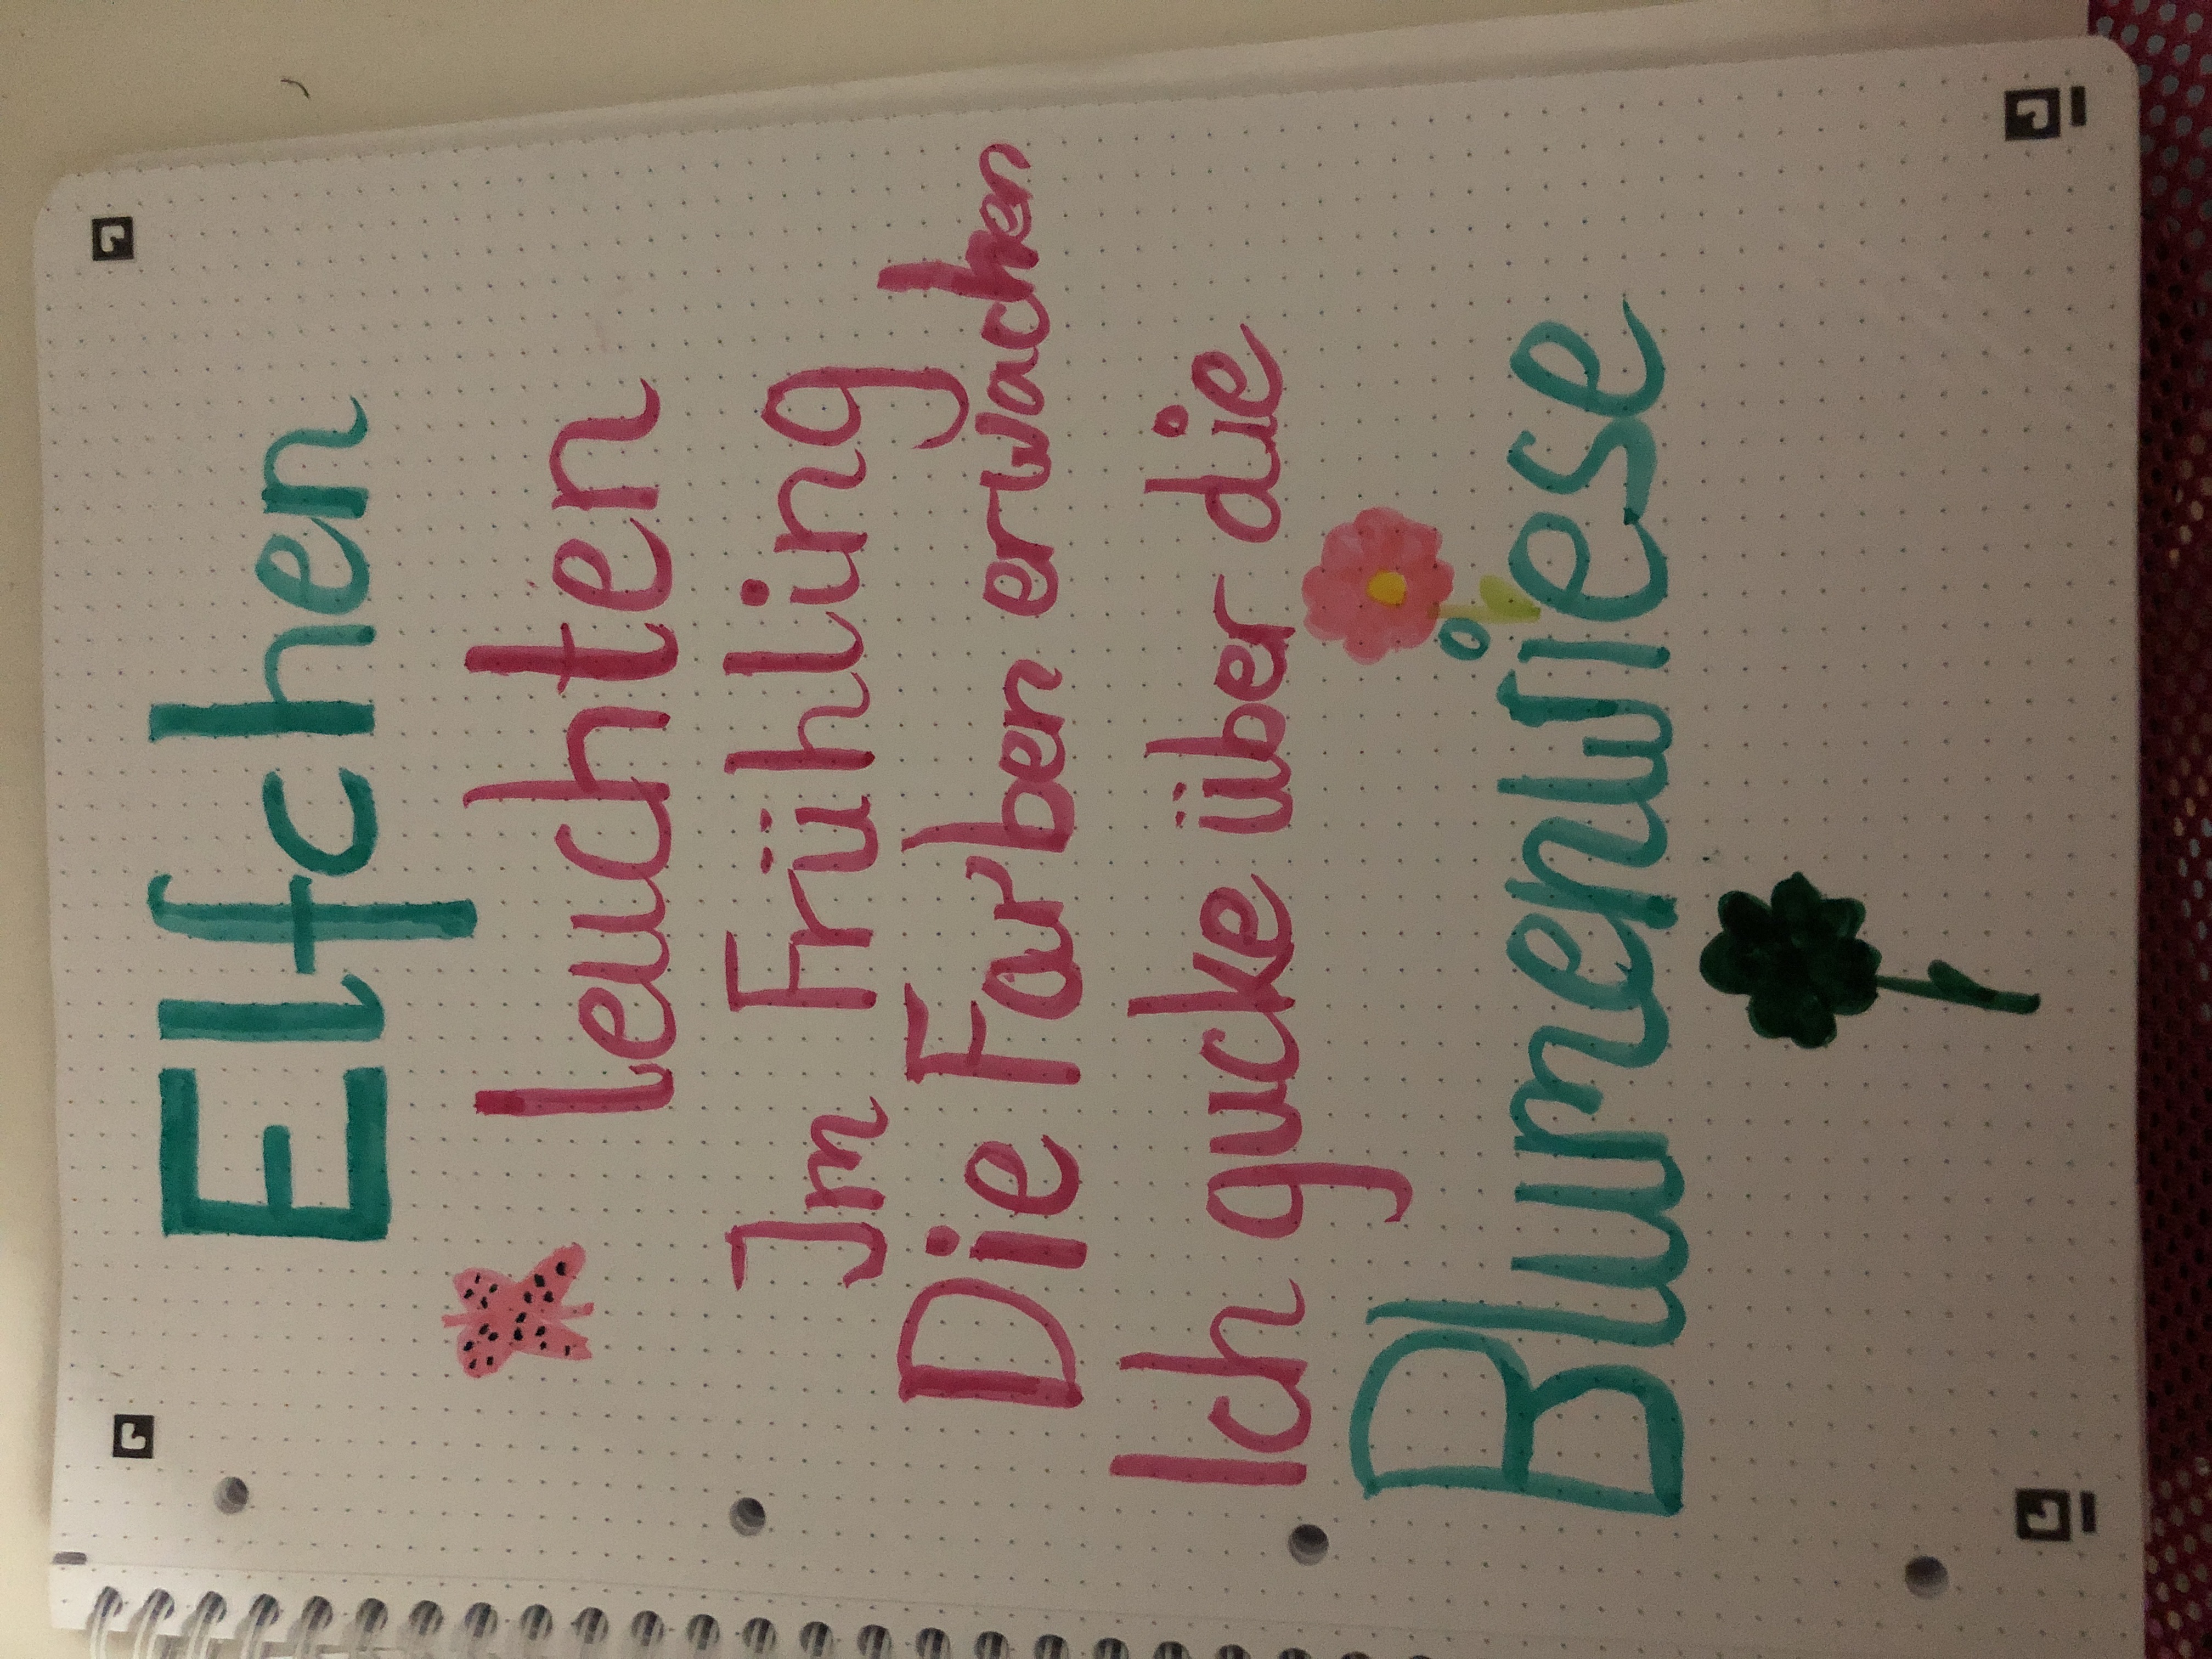 Elfchen
leuchten
Im Frühling
Die Farben erwachen
Ich gucke über die
Blumenwiese